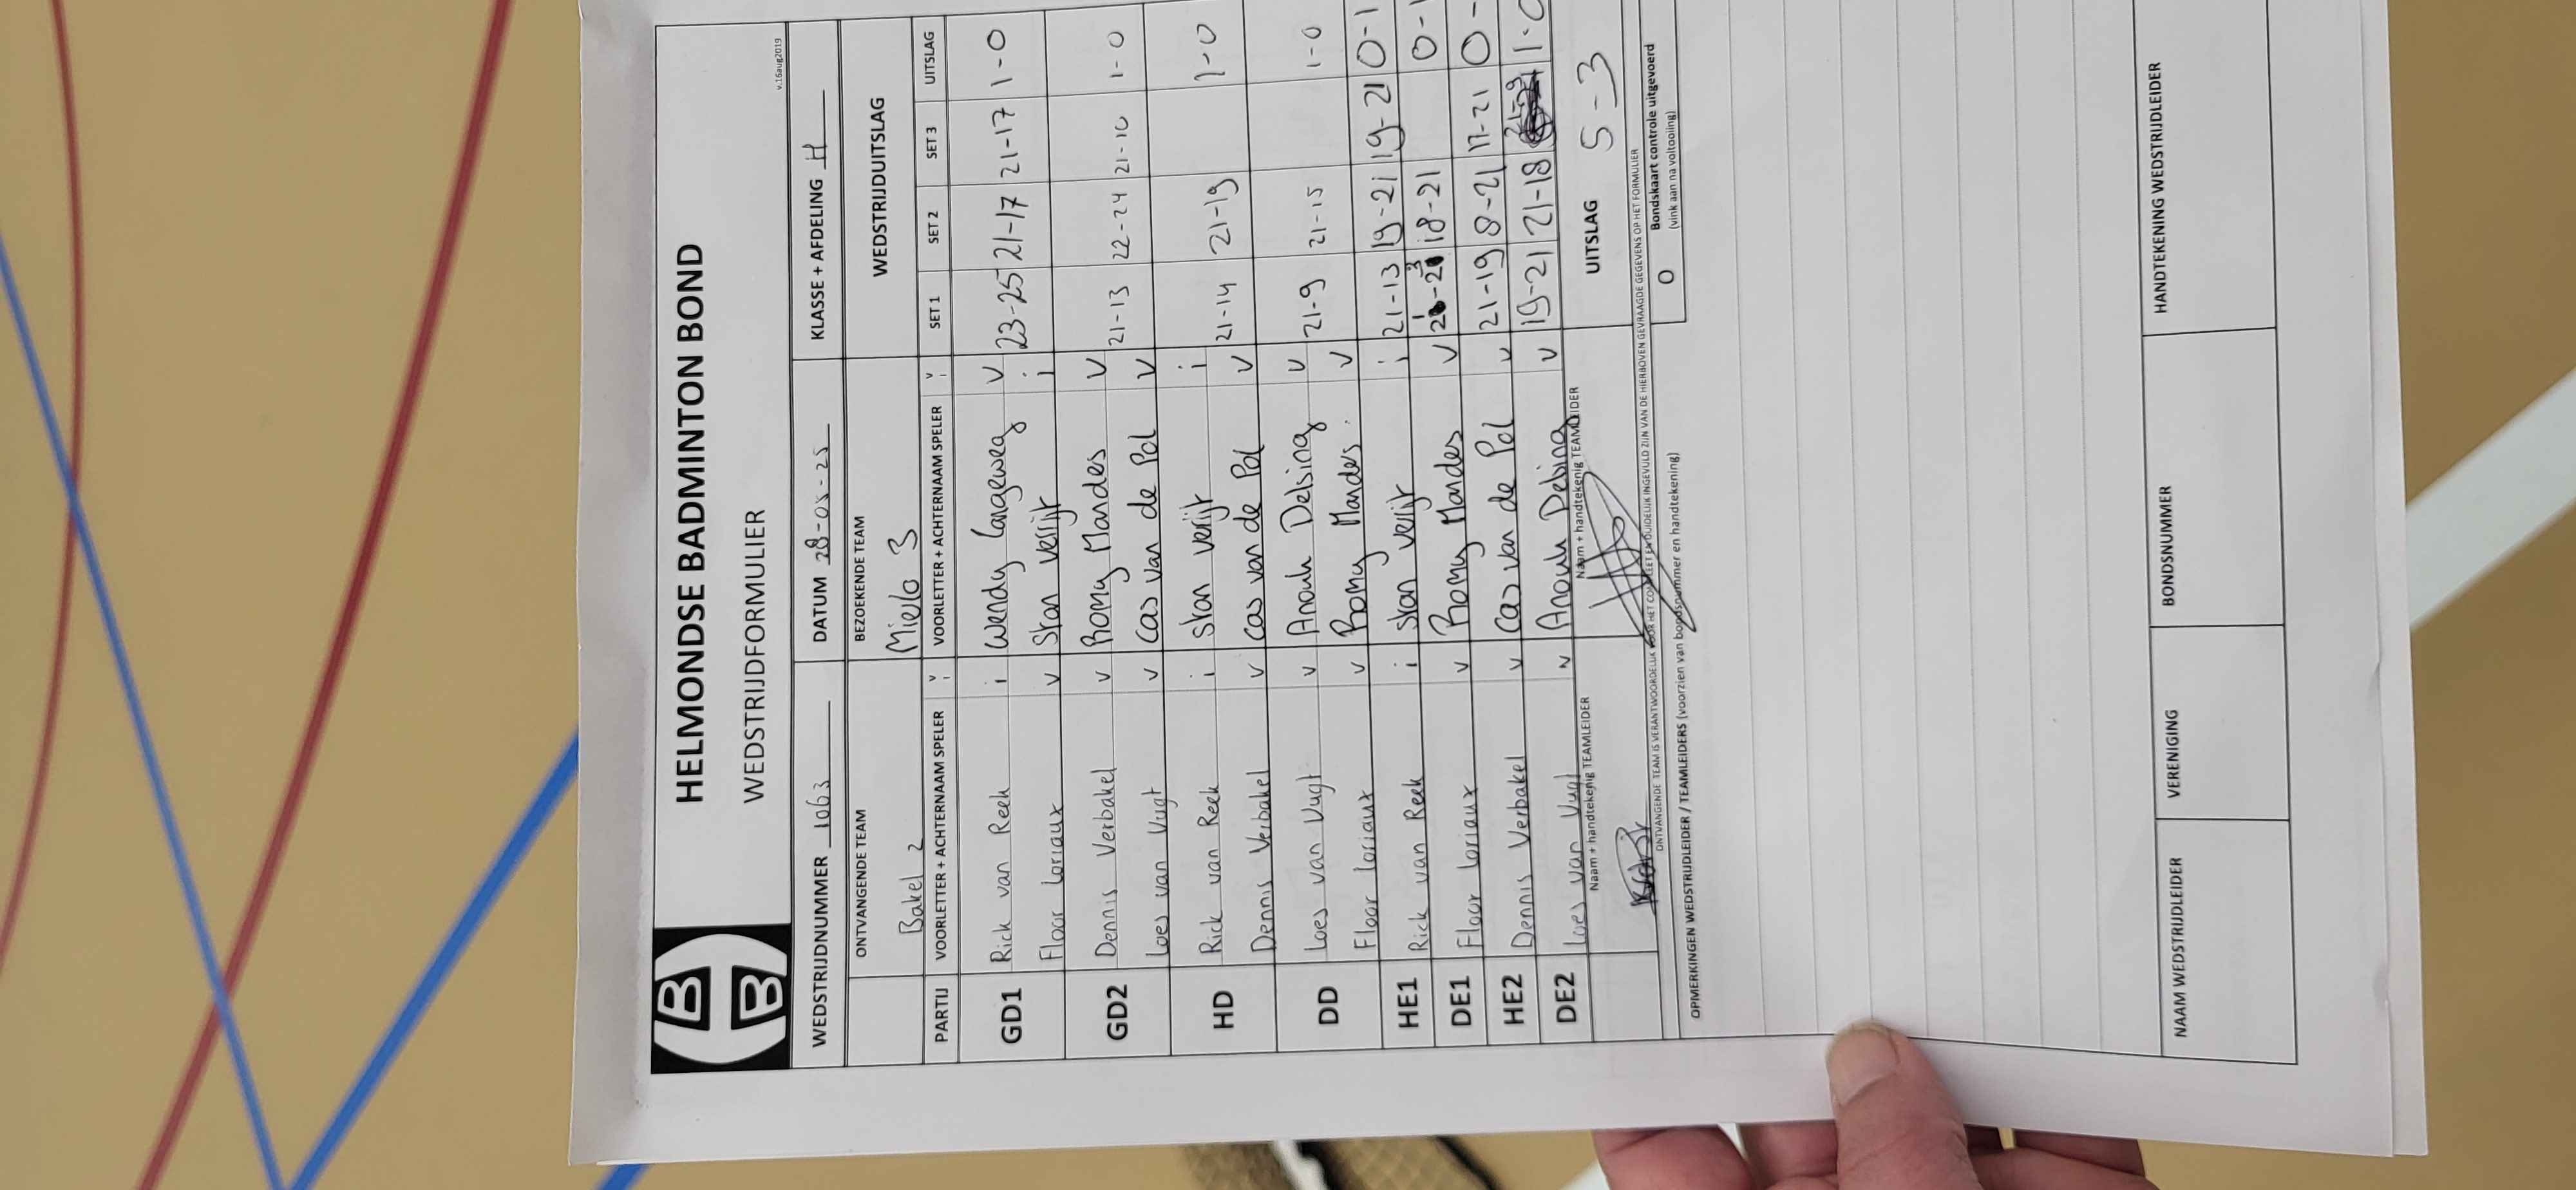 HELMONDSE BADMINTON BOND
WEDSTRIJDFORMULIER
v.16aug2019
WEDSTRIJDNUMMER 1063 DATUM 28-05-25 KLASSE + AFDELING H
ONTVANGENDE TEAM BEZOEKENDE TEAM WEDSTRIJDUITSLAG
Bakel 2 Mierlo 3
PARTIJ VOORLETTER + ACHTERNAAM SPELER v i VOORLETTER + ACHTERNAAM SPELER v i SET 1 SET 2 SET 3 UITSLAG
GD1 Rick van Reek i Wendy Langeweg v 23-25 21-17 21-17 1-0
Floor Loriaux v Stan Verrijt i
GD2 Dennis Verbakel v Romy Mandes v 21-13 22-24 21-10 1-0
Loes van Vugt v Cas van de Pol v
HD Rick van Reek i Stan Verijt i 21-14 21-19 1-0
Dennis Verbakel v Cas van de Pol v
DD Loes van Vugt v Anouk Delsing v 21-9 21-15 1-0
Floor Loriaux v Romy Mandes. v
HE1 Rick van Reek i Stan Verijt i 21-13 19-21 19-21 0-1
DE1 Floor Loriaux v Romy Mandes v 18-21 0-
HE2 Dennis Verbakel v Cas van de Pol v 21-19 8-21 17-21 0-
DE2 Loes van Vugt v Anouk Delsing v 19-21 21-18 1-0
Naam + handtekenig TEAMLEIDER Naam + handtekenig TEAMLEIDER UITSLAG 5-3
ONTVANGENDE TEAM IS VERANTWOORDELIJK VOOR HET COMPLEET EN DUIDELIJK INGEVULD ZIJN VAN DE HIERBOVEN GEVRAAGDE GEGEVENS OP HET FORMULIER
OPMERKINGEN WEDSTRIJDLEIDER / TEAMLEIDERS (voorzien van bondsnummer en handtekening)
O Bondskaart controle uitgevoerd
(vink aan na voltooiing)
NAAM WEDSTRIJDLEIDER VERENIGING BONDSNUMMER HANDTEKENING WEDSTRIJDLEIDER